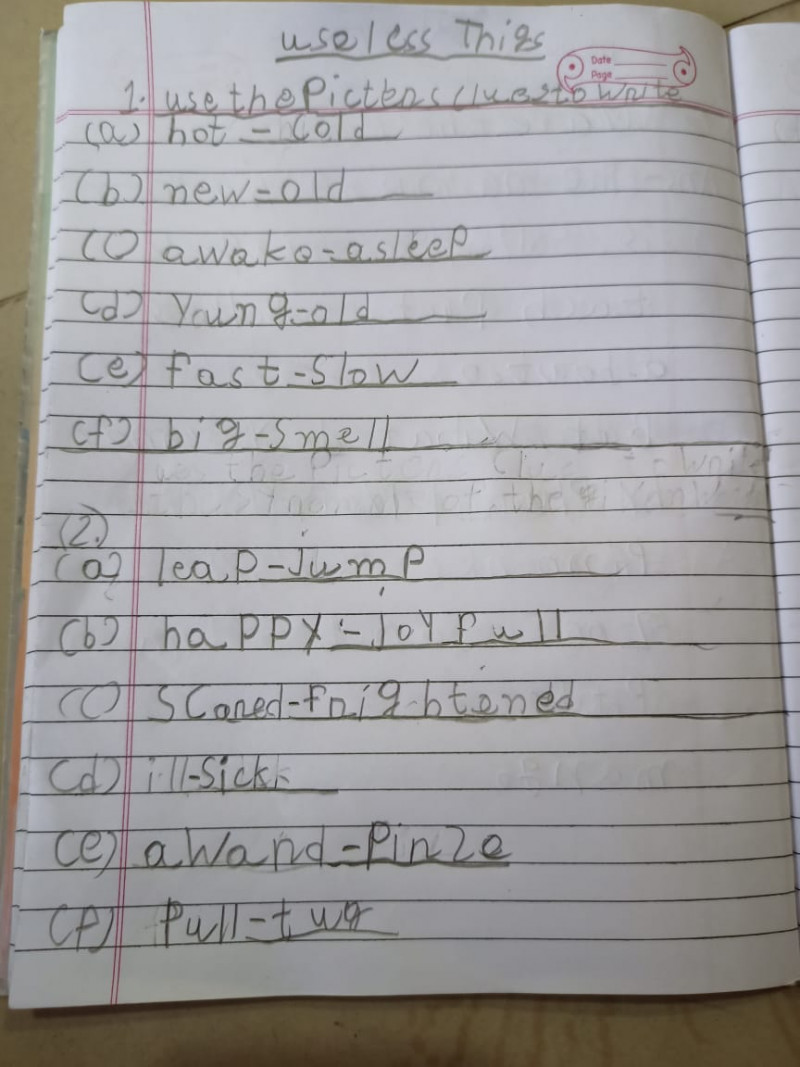 useless Thigs
Date
Page
1. use the Picters cluesto write
(a) hot - Cold
(b) new - old
(c) awake - asleep
(d) Young - old
(e) fast - Slow
(f) big - Smell
(2.)
(a) leap - Jump
(b) happy - Joyfull
(c) Scared - frightened
(d) ill - Sick
(e) award - Prize
(f) Pull - tug